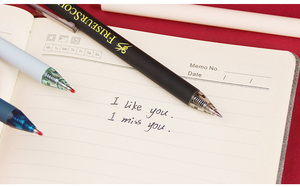 FRISEURSCOU
Memo No.
Date / /
I like you.
I miss you.